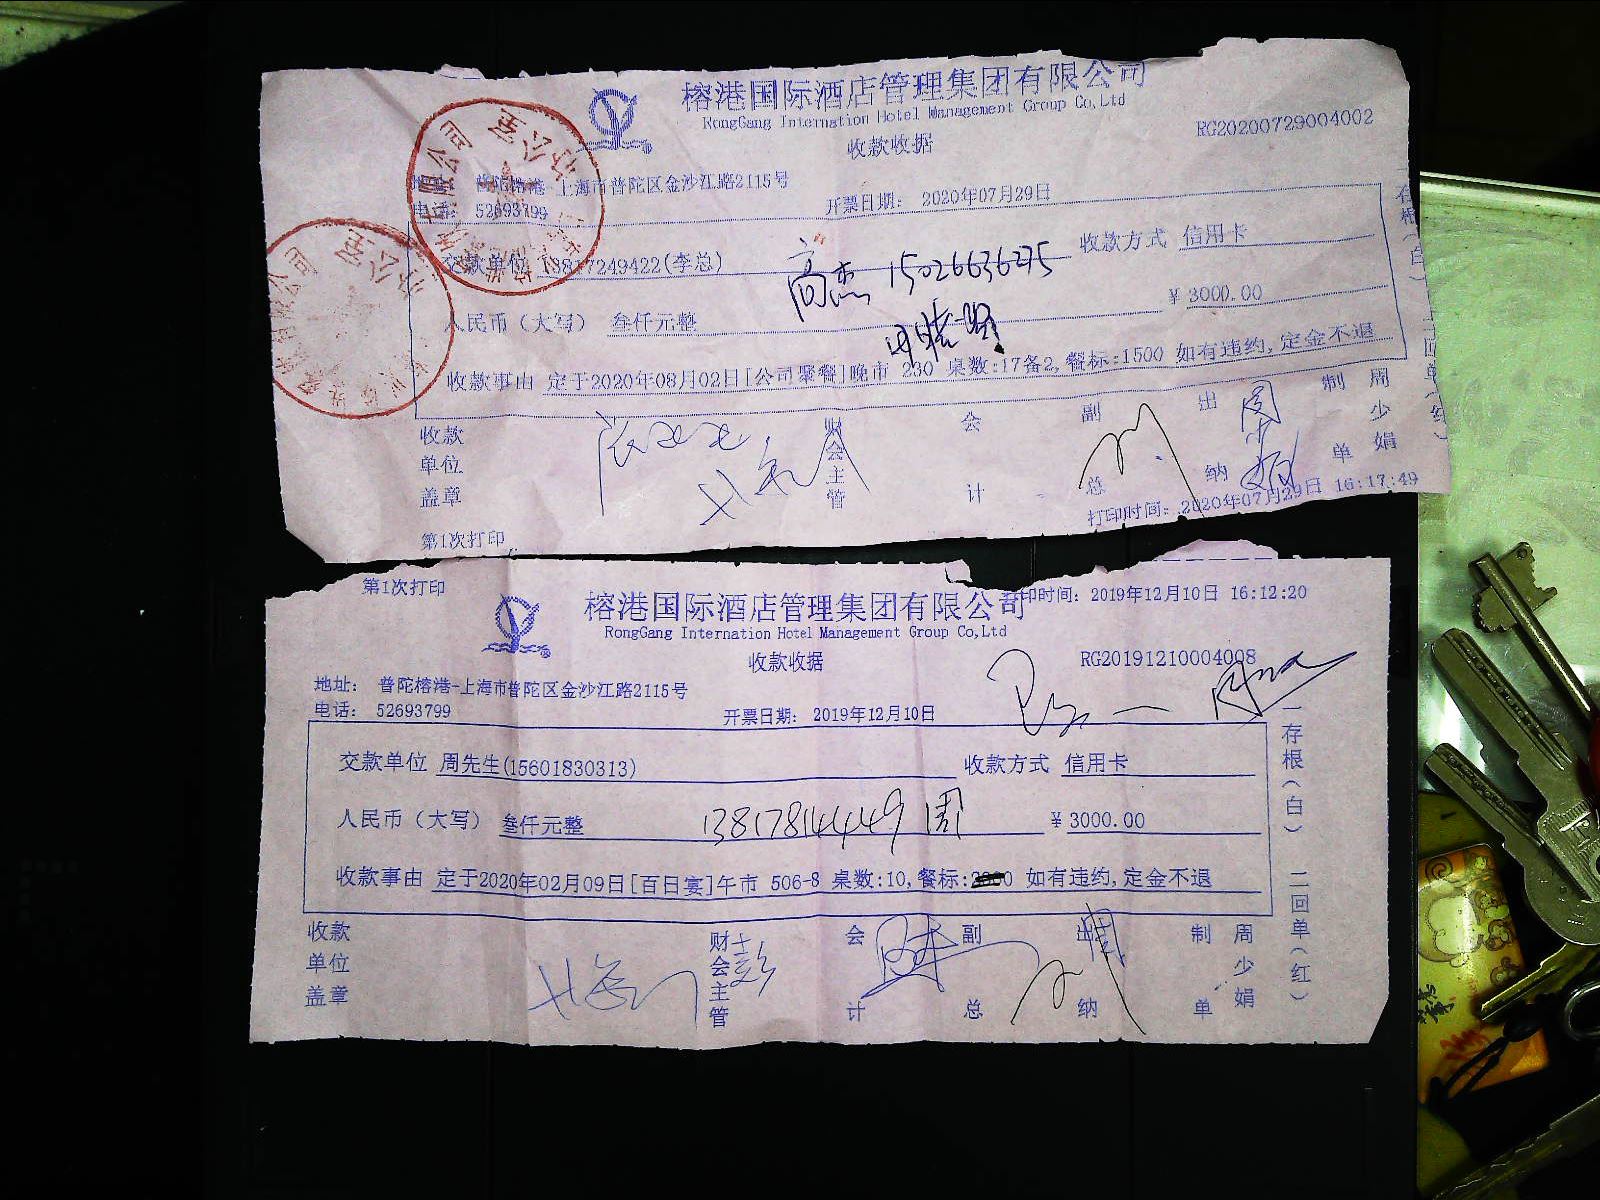 榕港国际酒店管理集团有限公司
RongGang Internation Hotel Management Group Co,Ltd
收款收据
RG20200729004002
普陀榕港-上海市普陀区金沙江路2115号
电话: 52693799
开票日期: 2020年07月29日
交款单位 18817249422(李总)
高杰 15026636275
收款方式 信用卡
人民币（大写） 叁仟元整
¥ 3000.00
收款事由 定于2020年08月02日[公司聚餐]晚市 230 桌数:17备2,餐标:1500 如有违约,定金不退
存根(白)
二回单(红)
收款单位盖章
财会主管
会计
副总
出纳
周少娟
制单
周少娟
第1次打印
打印时间: 2020年07月29日 16:17:49
有限公司
分公司
有限公司
分公司
第1次打印
榕港国际酒店管理集团有限公司
印时间: 2019年12月10日 16:12:20
RongGang Internation Hotel Management Group Co,Ltd
收款收据
RG20191210004008
地址: 普陀榕港-上海市普陀区金沙江路2115号
电话: 52693799
开票日期: 2019年12月10日
交款单位 周先生(15601830313)
收款方式 信用卡
人民币（大写） 叁仟元整
13817814449 周
¥ 3000.00
收款事由 定于2020年02月09日[百日宴]午市 506-8 桌数:10,餐标: 如有违约,定金不退
一存根(白)
二回单(红)
收款单位盖章
财会主管
会计
副总
出纳
制单
周少娟